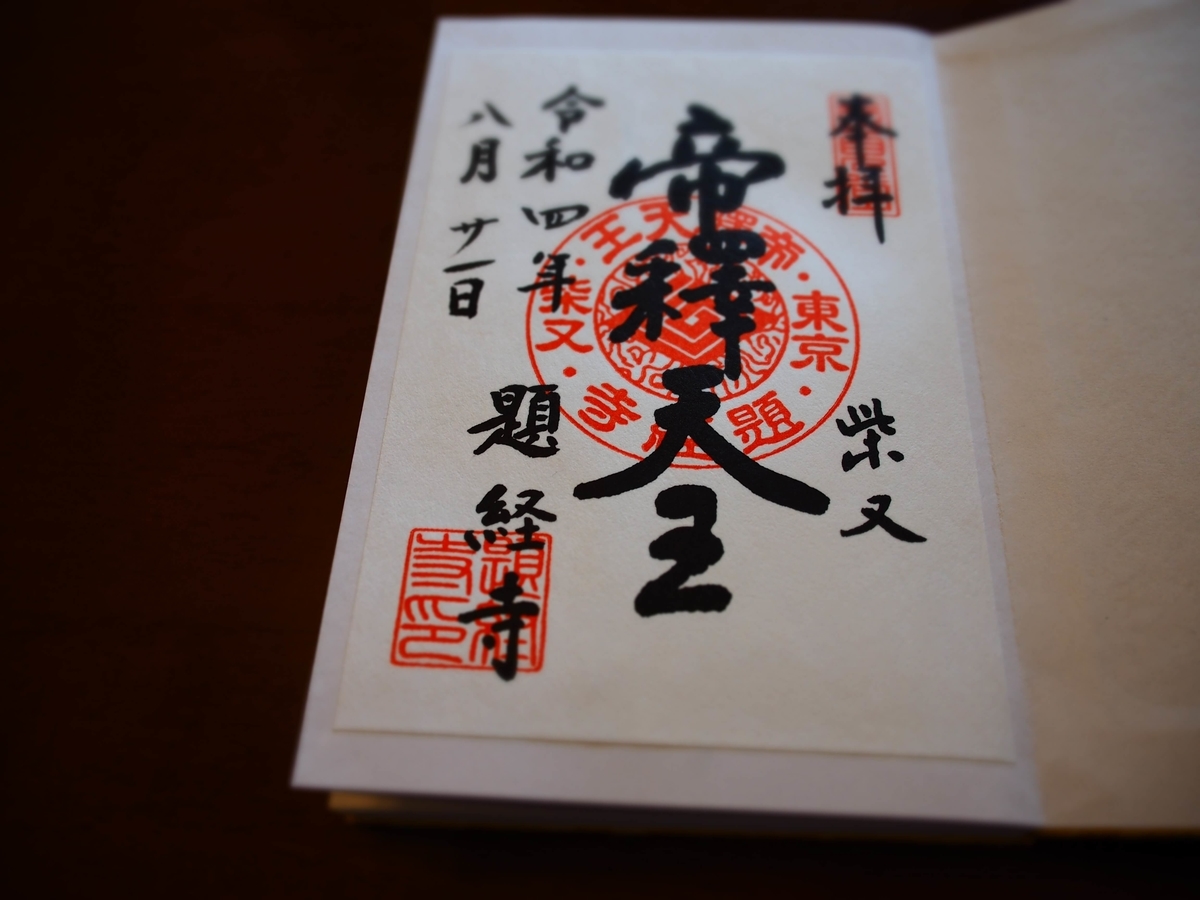 奉拝
柴又
帝釋天王
令和四年
八月廿一日
題経寺
帝釋天王
東京
柴又
題経寺
題経寺印